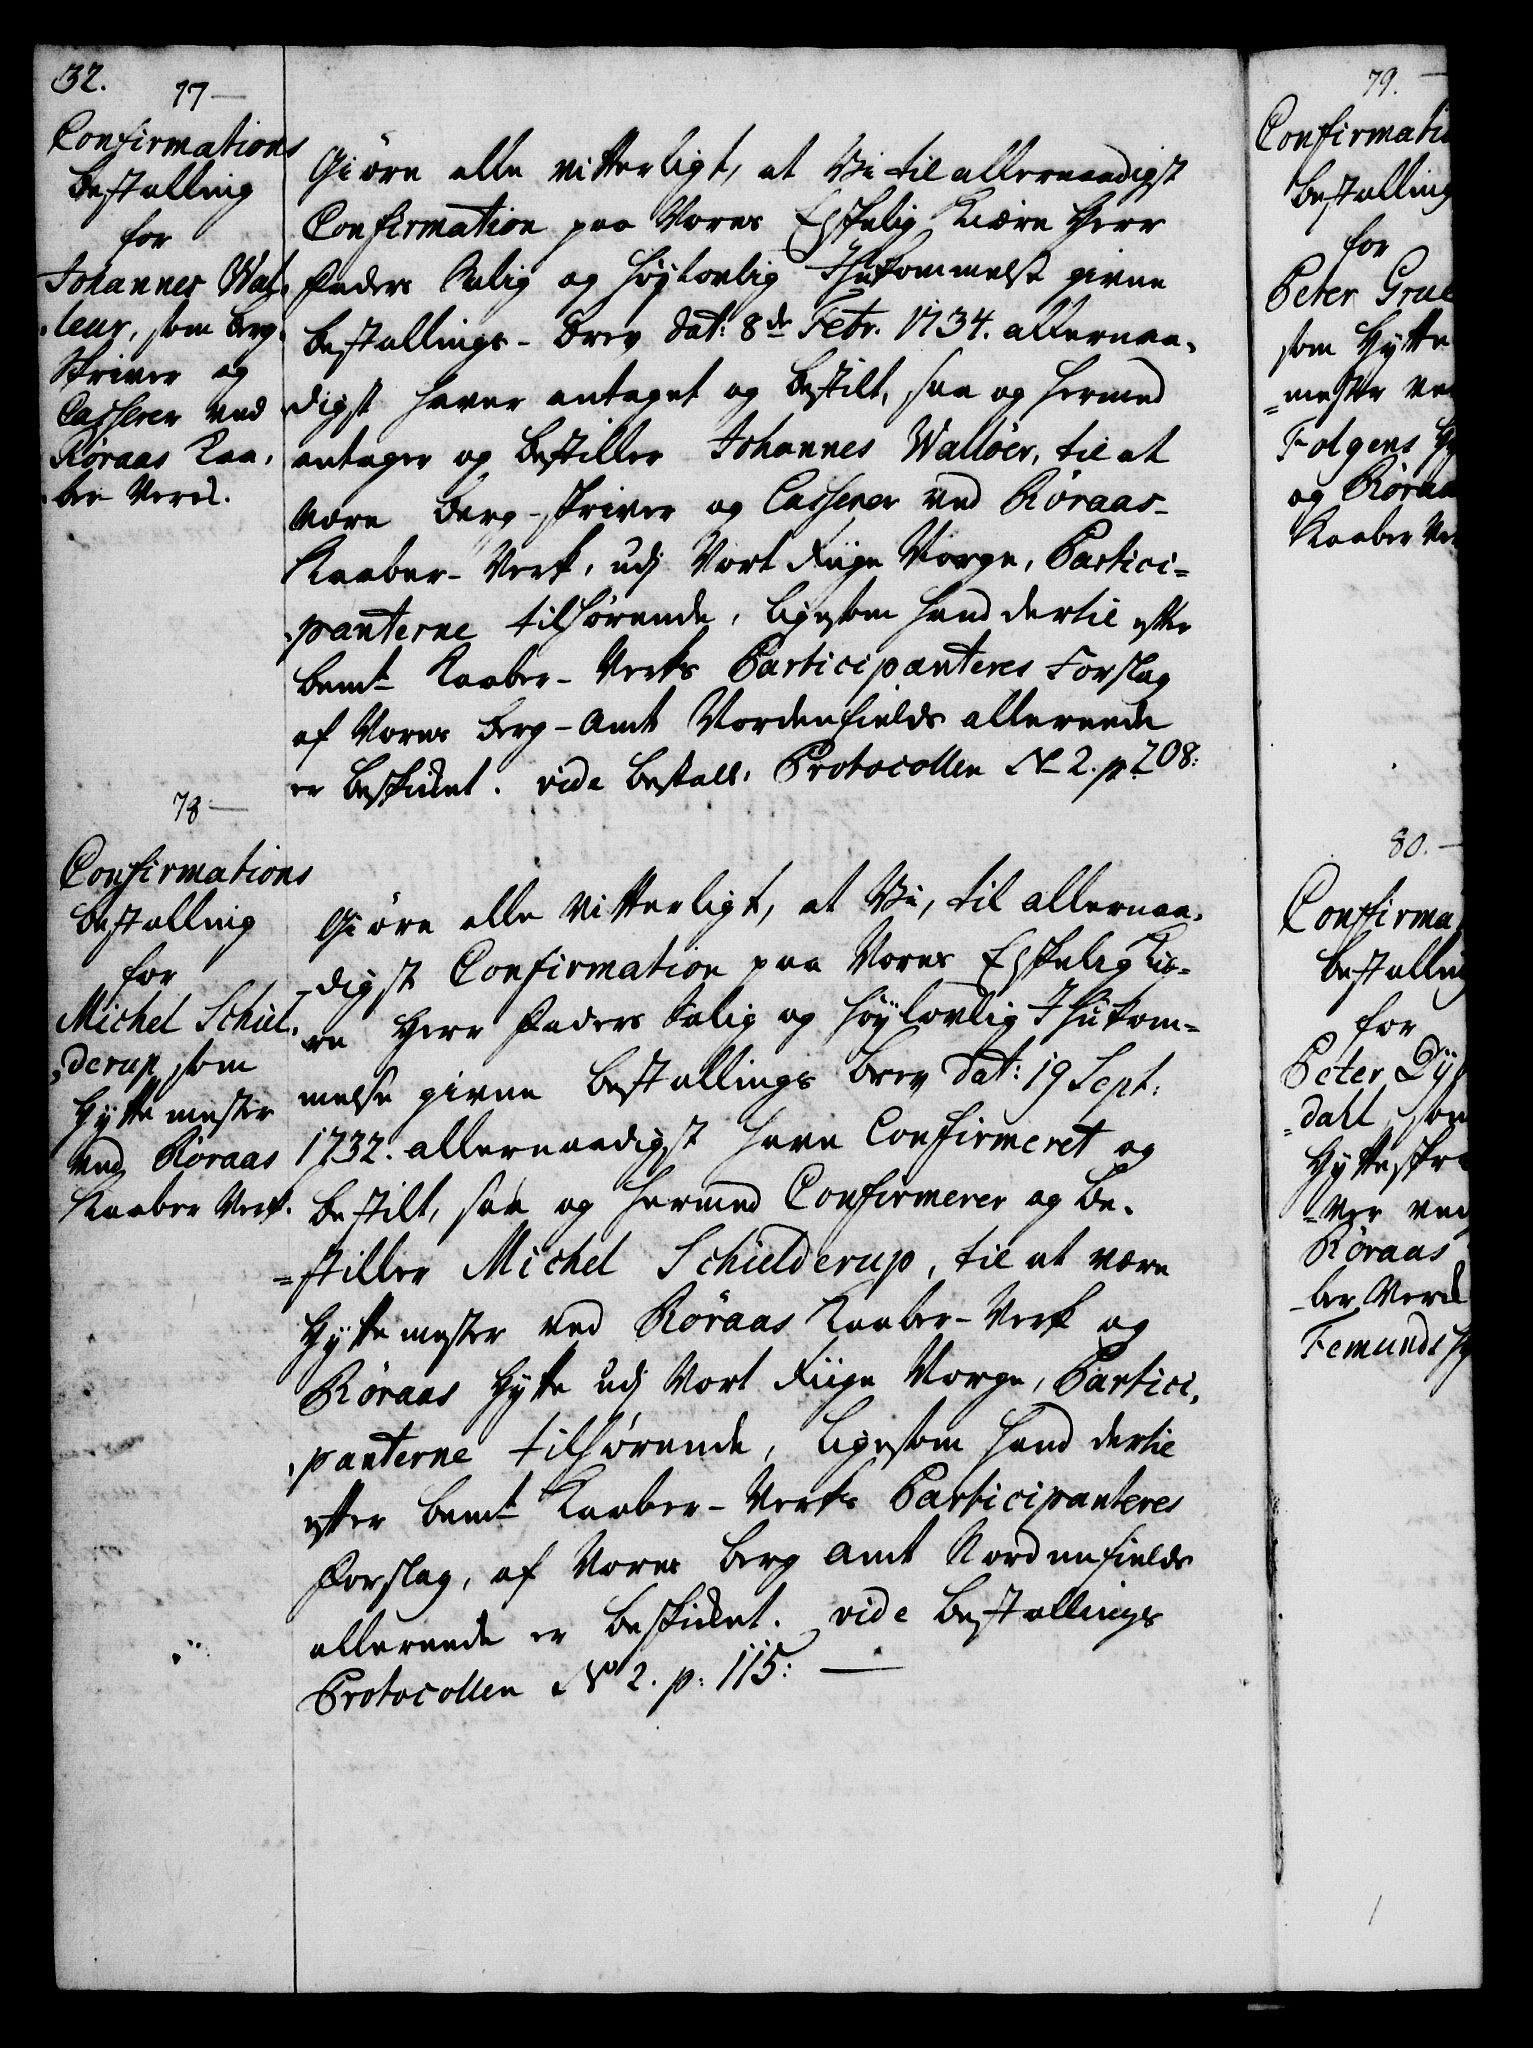 32.
77
Confirmations
Bestalling
for
Johannes Wal-
-leur, som Berg-
Skriver og
Casserer ved
Røraas Kaa-
-ber Verck.
Giöre alle vitterligt, at Vi til allernaadigst
Confirmation paa Vores Elskelig Kiære Herr
Faders Salig og Høylovlig Ihukommelse givne
Bestallings-Brev dat: 8de Febr. 1734. allernaa-
digst haver antaget og bestilt, saa og hermed
antager og bestiller Johannes Wallöer, til at
være Berg-skriver og Casserer ved Röraas-
Kaaber-Verk, udj Vort Riige Norge, Partici-
-panterne tilhørende, ligesom hand dertil efter
bemt Kaaber-Verks Participanteres Forslag
af Vores Berg-Amt Nordenfields allereede
er beskicket. vide Bestall: Protocollen No 2. p 208:
78
Confirmations
Bestalling
for
Michel Schiel-
-derup, som
Hyttemester
ved Röraas
Kaaber Verk.
Giöre alle vitterligt, at Vi, til allernaa-
-digst Confirmation paa Vores Elskelig Kiæ-
re Herr Faders Salig og Høylovlig Ihukom-
melse givne Bestallings Brev dat: 19 Sept:
1732. allernaadigst have Confirmeret og
bestilt, saa og hermed Confirmerer og be-
=stiller Michel Schielderup, til at være
Hyttemester ved Röraas Kaaber-Verk og
Röraas Hytte udj Vort Riige Norge, Partici-
-panterne tilhørende, ligesom hand dertil
efter bemt Kaaber-Verks Participanteres
Forslag, af Vores Berg Amt Nordenfields
allereede er beskicket. vide Bestallings
Protocollen No 2. p: 115:
79.
Confirmatio
Bestalling
for
Peter Grue
som Hytte
=mester ve
Folgens Hy
og Röraa
Kaaber Ve
80.
Confirma
Bestallin
for
Peter Dy
=dahl, som
Hytteskri
=ver ved
Röraas
-ber Verck
Femunds Hy